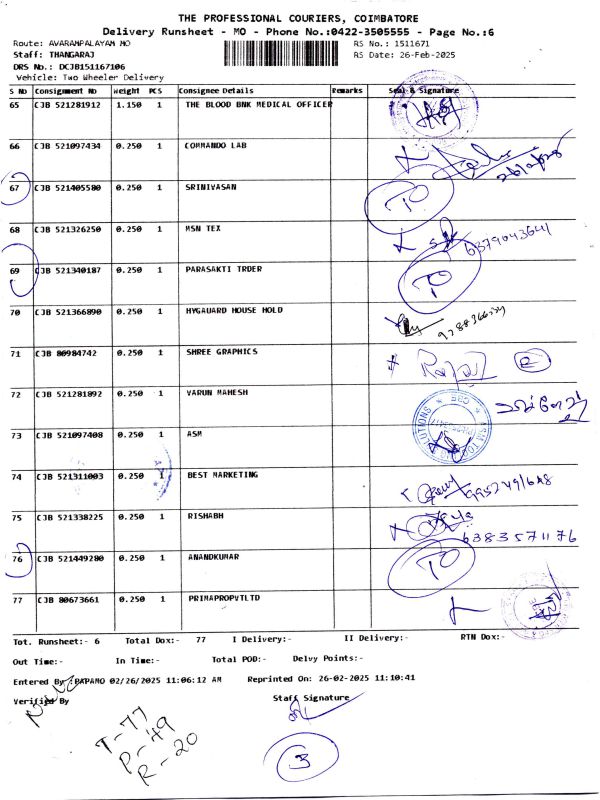 THE PROFESSIONAL COURIERS, COIMBATORE
Delivery Runsheet - MO - Phone No.:0422-3505555 - Page No.:6
Route: AVARAMPALAYAM MO RS No.: 1511671
Staff: THANGARAJ RS Date: 26-Feb-2025
DRS No.: DCJB151167106
Vehicle: Two Wheeler Delivery
S No Consignment No Weight PCS Consignee Details Remarks Seal & Signature
65 CJB 521281912 1.150 1 THE BLOOD BNK MEDICAL OFFICER
66 CJB 521097434 0.250 1 COMMANDO LAB
67 CJB 521405580 0.250 1 SRINIVASAN TO
68 CJB 521326250 0.250 1 MSN TEX 6379043641
69 CJB 521340187 0.250 1 PARASAKTI TRDER TO
70 CJB 521366890 0.250 1 HYGAUARD HOUSE HOLD
71 CJB 80984742 0.250 1 SHREE GRAPHICS
72 CJB 521281892 0.250 1 VARUN MAHESH
73 CJB 521097408 0.250 1 ASM
74 CJB 521311003 0.250 1 BEST MARKETING
75 CJB 521338225 0.250 1 RISHABH 6383571176
76 CJB 521449280 0.250 1 ANANDKUMAR TO
77 CJB 80673661 0.250 1 PRIMAPROPVTLTD
Tot. Runsheet:- 6 Total Dox:- 77 I Delivery:- II Delivery:- RTN Dox:-
Out Time:- In Time:- Total POD:- Delvy Points:-
Entered By :PAPAMO 02/26/2025 11:06:12 AM Reprinted On: 26-02-2025 11:10:41
Verified By Staff Signature
T-77
P-49
R-20
3